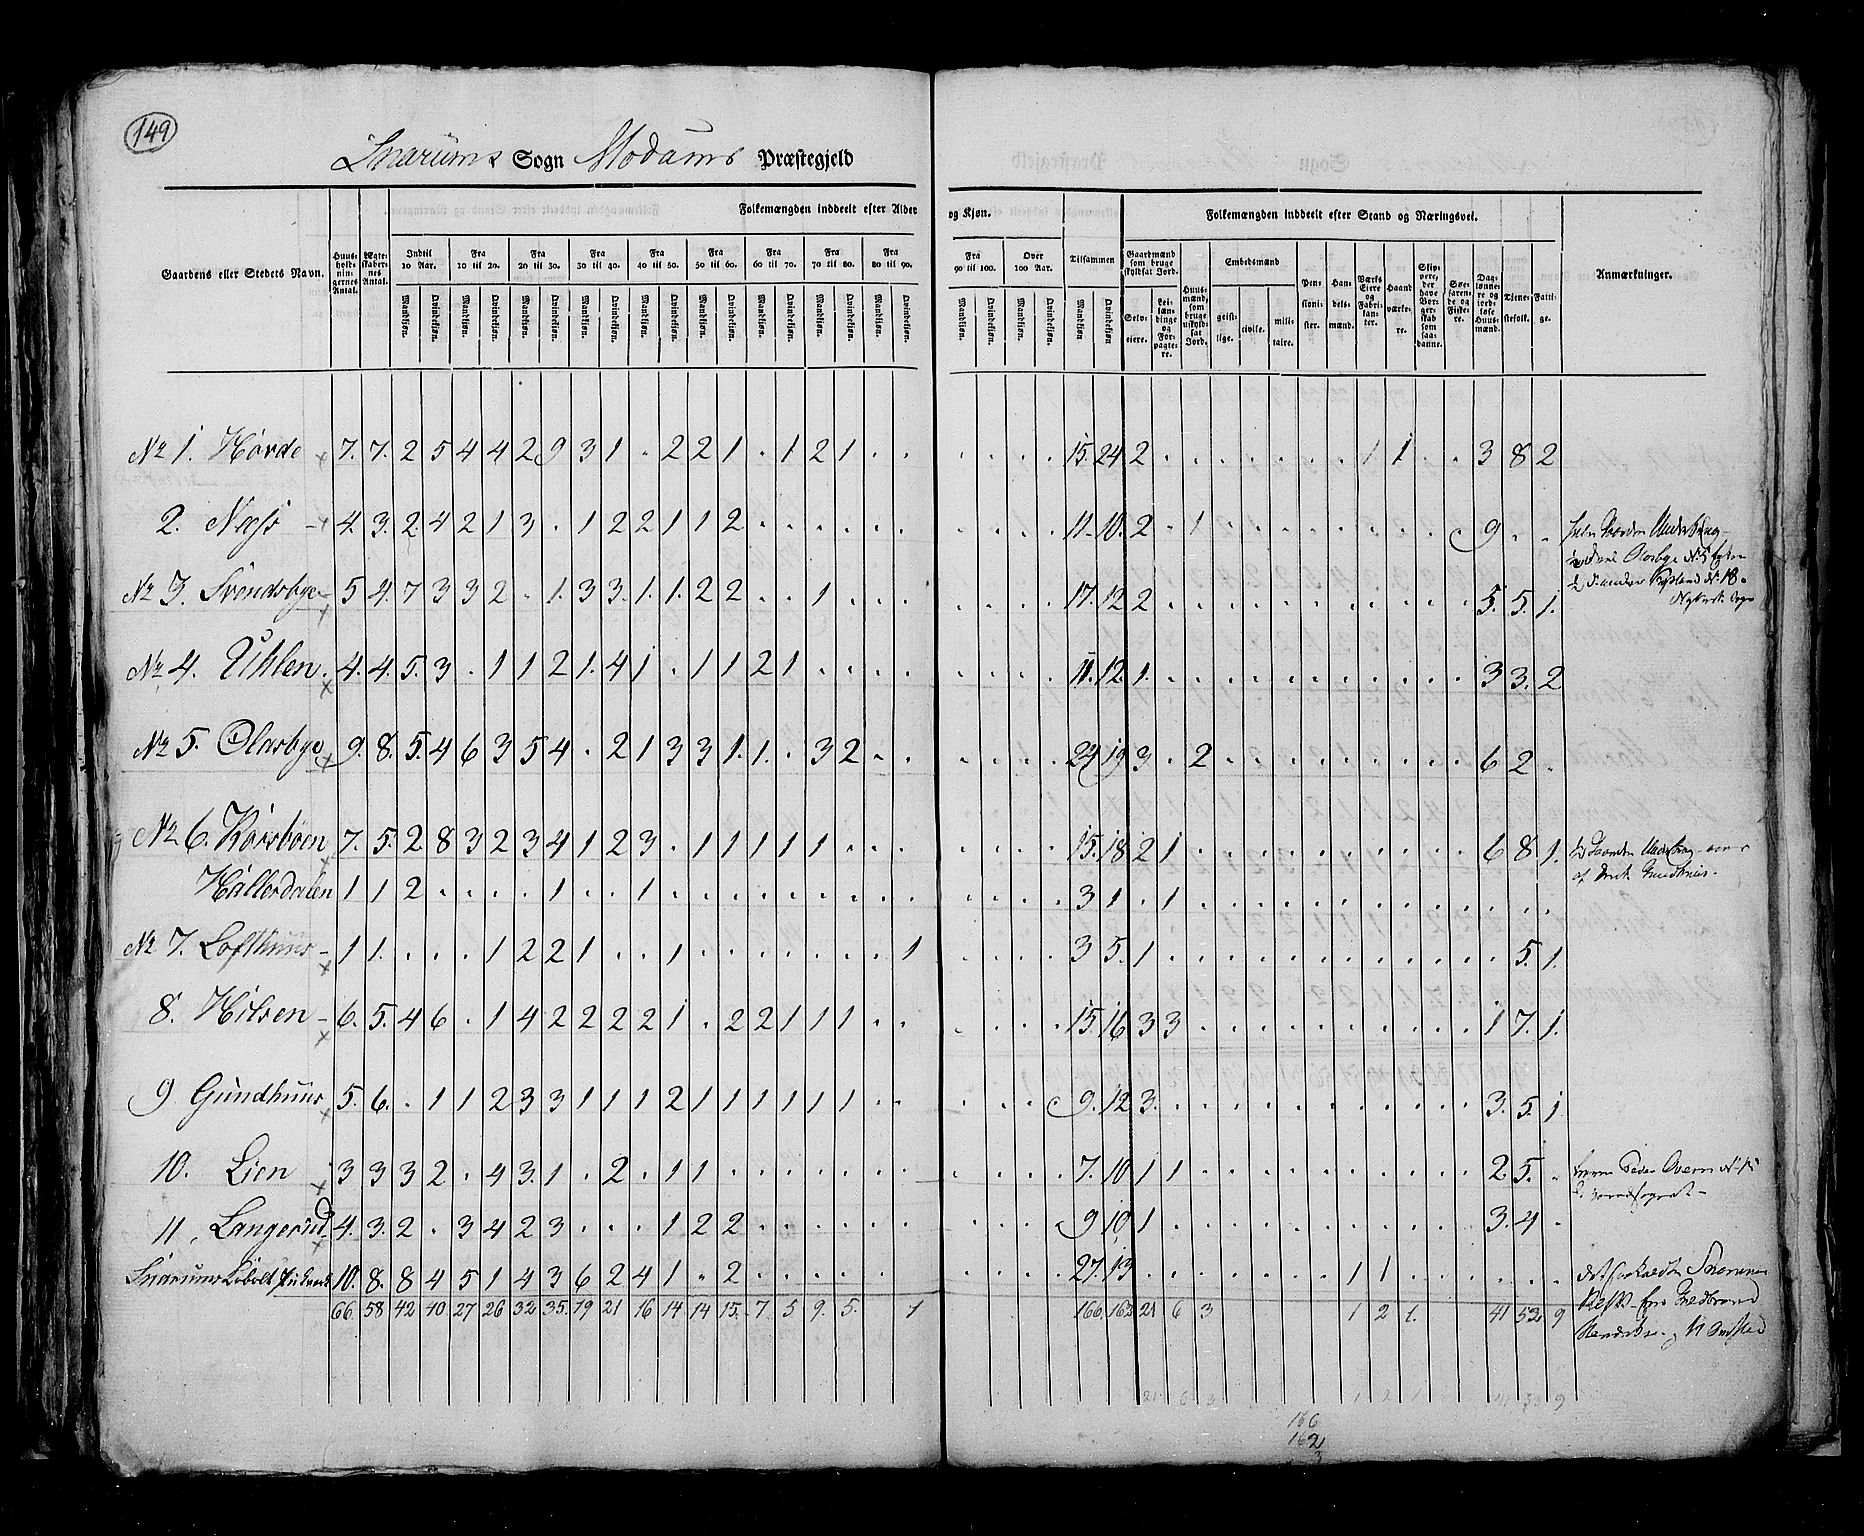 149
Snarums Sogn Modums Præstegjeld
Folkemængden inddeelt efter Alder og Kjøn.
Folkemængden inddeelt efter Stand og Næringsvei.
Gaardens eller Stedets Navn.
Huusholdningernes Antal.
Ægteskabernes Antal.
Indtil 10 Aar.
Fra 10 til 20.
Fra 20 til 30.
Fra 30 til 40.
Fra 40 til 50.
Fra 50 til 60.
Fra 60 til 70.
Fra 70 til 80.
Fra 80 til 90.
Fra 90 til 100.
Over 100 Aar.
Tilsammen
Gaardmænd som bruge skyldsat Jord.
Selveiere.
Leilændinge og Forpagtere.
Huusmænd, som bruge uskyldsat Jord.
Embedsmænd
geistlige.
civile.
militaire.
Pensionister.
Handelsmænd.
Værks Eiere og Fabrikanter.
Haandværkere.
Skippere, der have Borgerskab som saadanne.
Søefarende og Fiskere.
Daglønnere og jordløse Huusmænd.
Tjenestefolk.
Fattige.
Anmærkninger.
Mandkjøn. Qvindekjøn. Mandkjøn. Qvindekjøn. Mandkjøn. Qvindekjøn. Mandkjøn. Qvindekjøn. Mandkjøn. Qvindekjøn. Mandkjøn. Qvindekjøn. Mandkjøn. Qvindekjøn. Mandkjøn. Qvindekjøn. Mandkjøn. Qvindekjøn. Mandkjøn. Qvindekjøn. Mandkjøn. Qvindekjøn. Mandkjøn. Qvindekjøn.
No 1. Hovde 7. 7. 2 5 4 4 2 9 3 1 . 2 2 1 . 1 2 1 . . . . . . 15. 24 2 . . . . . . . 1 1 . . 3 8 2
2. Næss 4 3. 2 4 2 1 3 . 1 2 2 1 1 2 . . . . . . . . . . 11. 10. 2 . 1 . . . . . . . . . 9 . .
No 3. Svendsbye 5 4. 7 3 3 2 . 1. 3 3. 1. 1. 2 2 . . 1 . . . . . . . 17. 12 2 . . . . . . . . . . . 5. 5. 1.
No 4. Uhlen. 4. 4. 5. 3 . 1 1 2 1. 4 1 . 1 1 2 1 . . . . . . . . 11. 12. 1. . . . . . . . . . . . 3 3. 2
No 5. Olasbye 9. 8. 5. 4 6 3 5 4 . 2 1 3 3 1. 1. . 3 2 . . . . . . 24 19 3 . 2 . . . . . . . . . 6 2 .
No 6. Korsbøen 7. 5. 2 8 3 2 3 4 1 2 3 . 1 1 1 1 1 . . . . . . . 15. 18 2 1 . . . . . . . . . . 6 8 1.
Hallerdalen 1 1 2 . . . . 1 . . 1 . . . . . . . . . . . . . 3 1 . 1 . . . . . . . . . . . . .
No 7. Lofthuus 1 1. . . . 1 2 2 1 . . 1 . . . . . . . 1 . . . . 3 5. 1 . . . . . . . . . . . . 5. 1.
8. Hilsen 6. 5. 4 6 . 1 4 2 2 2 2 1 . 2 2 1 1 1 . . . . . . 15. 16 3 3 . . . . . . . . . . 1 7. 1.
9 Gundhuus 5. 6. . 1 1 2 3 3 1 1 1 2 1 1 1 1 1 1 . . . . . . 9. 12 3. . . . . . . . . . . . 3. 5. 1
10. Lien 3 3 3 2 . 4 3. 1 . 2 . 1 1 . . . . . . . . . . . 7. 10 1 1 . . . . . . . . . . 2 5. .
11. Langerud 4. 3. 2 . 3 4 2 3 . . . 1 2 2 . . . . . . . . . . 9 10 1 . . . . . . . . . . . 3. 4 .
Snarums 10. 8. 8 4 5 1 4 3 6 2 4 1 . 2 . . . . . . 27. 13 . . . . . . . 1 1 . . . . .
66 58 42 40 27 26 32 35. 19 21 16 14 14 15. 7 5 9. 5. 1 166 162 21 6 3 1 2 1. 41 53 9
21 6 3 1 2 1 41 53 9
166
162
3